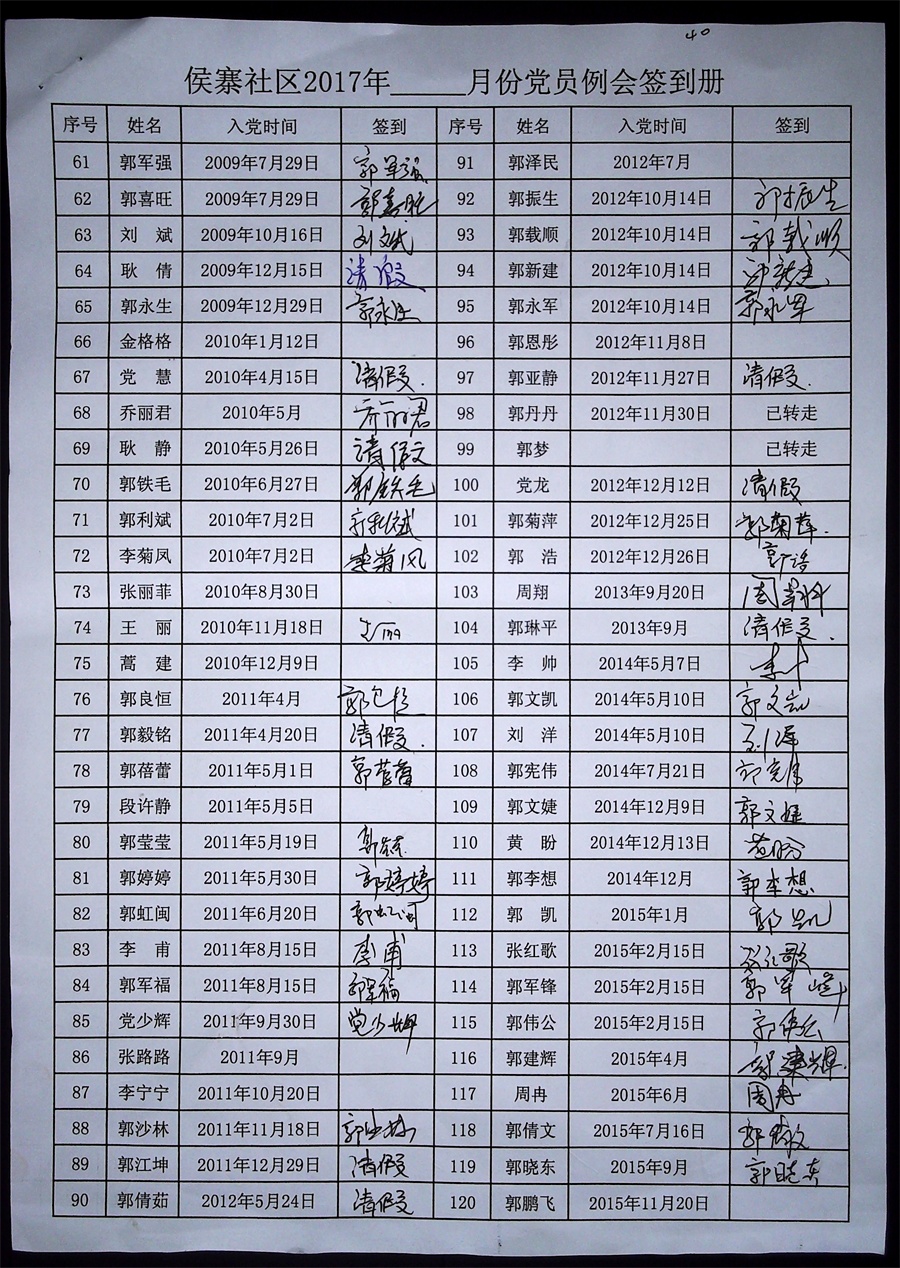 40
侯寨社区2017年______月份党员例会签到册
序号 姓名 入党时间 签到 序号 姓名 入党时间 签到
61 郭军强 2009年7月29日 郭军强 91 郭泽民 2012年7月
62 郭喜旺 2009年7月29日 郭喜旺 92 郭振生 2012年10月14日 郭振生
63 刘 斌 2009年10月16日 刘斌 93 郭载顺 2012年10月14日 郭载顺
64 耿 倩 2009年12月15日 请假 94 郭新建 2012年10月14日 郭新建
65 郭永生 2009年12月29日 郭永生 95 郭永军 2012年10月14日 郭永军
66 金格格 2010年1月12日 96 郭恩彤 2012年11月8日
67 党 慧 2010年4月15日 请假. 97 郭亚静 2012年11月27日 请假.
68 乔丽君 2010年5月 乔丽君 98 郭丹丹 2012年11月30日 已转走
69 耿 静 2010年5月26日 请假 99 郭梦 已转走
70 郭铁毛 2010年6月27日 郭铁毛 100 党龙 2012年12月12日 请假
71 郭利斌 2010年7月2日 郭利斌 101 郭菊萍 2012年12月25日 郭菊萍.
72 李菊凤 2010年7月2日 李菊凤 102 郭 浩 2012年12月26日 郭浩
73 张丽菲 2010年8月30日 103 周翔 2013年9月20日
74 王 丽 2010年11月18日 王丽 104 郭琳平 2013年9月 请假.
75 蒿 建 2010年12月9日 105 李 帅 2014年5月7日 李帅
76 郭良恒 2011年4月 郭良恒 106 郭文凯 2014年5月10日 郭文凯
77 郭毅铭 2011年4月20日 请假. 107 刘 洋 2014年5月10日 刘洋
78 郭蓓蕾 2011年5月1日 郭蓓蕾 108 郭宪伟 2014年7月21日 郭宪伟
79 段许静 2011年5月5日 109 郭文婕 2014年12月9日 郭文婕
80 郭莹莹 2011年5月19日 郭莹莹 110 黄 盼 2014年12月13日 黄盼
81 郭婷婷 2011年5月30日 郭婷婷 111 郭李想 2014年12月 郭李想
82 郭虹闽 2011年6月20日 郭虹闽 112 郭 凯 2015年1月 郭凯
83 李 甫 2011年8月15日 李甫 113 张红歌 2015年2月15日 张红歌
84 郭军福 2011年8月15日 郭军福 114 郭军锋 2015年2月15日 郭军峰
85 党少辉 2011年9月30日 党少辉 115 郭伟公 2015年2月15日 郭伟公
86 张路路 2011年9月 116 郭建辉 2015年4月 郭建辉.
87 李宁宁 2011年10月20日 117 周冉 2015年6月 周冉
88 郭沙林 2011年11月18日 郭沙林 118 郭倩文 2015年7月16日 郭倩文
89 郭江坤 2011年12月29日 请假 119 郭晓东 2015年9月 郭晓东
90 郭倩茹 2012年5月24日 请假 120 郭鹏飞 2015年11月20日